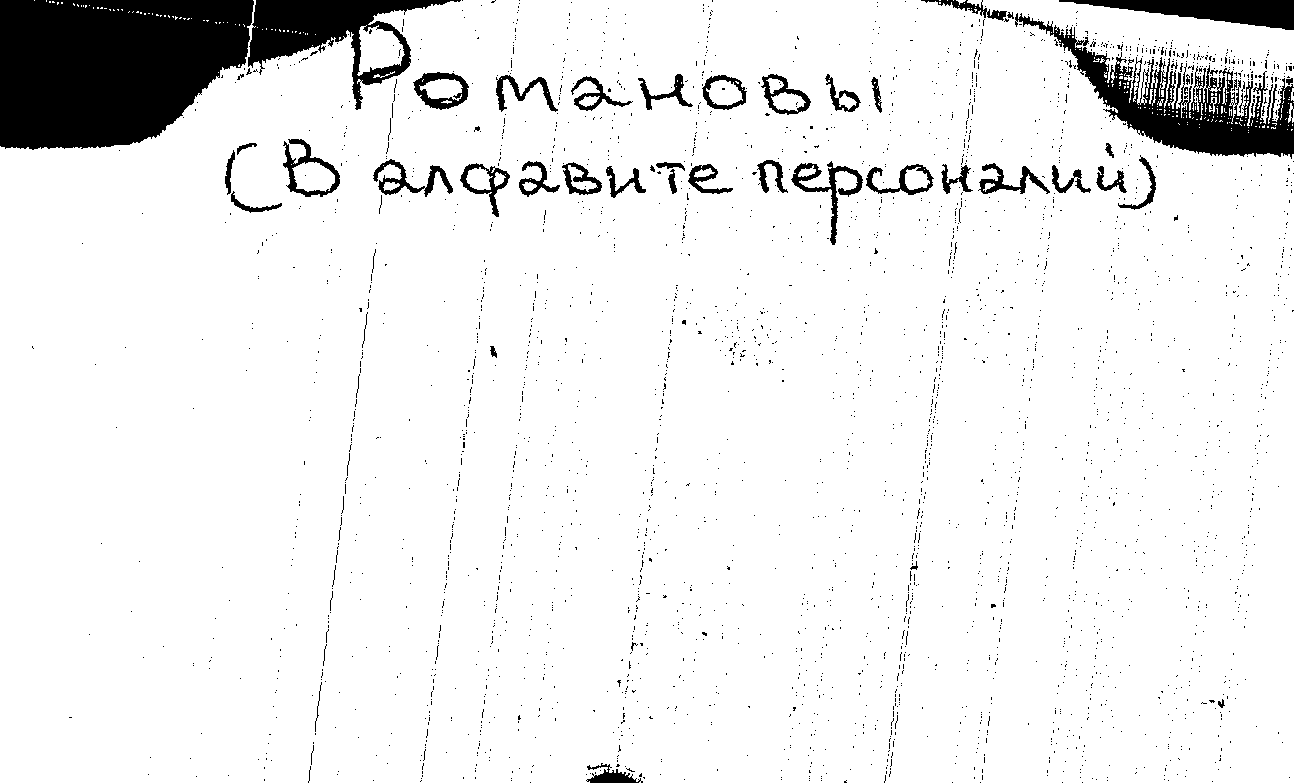 Романовы
(В алфавите персоналий)